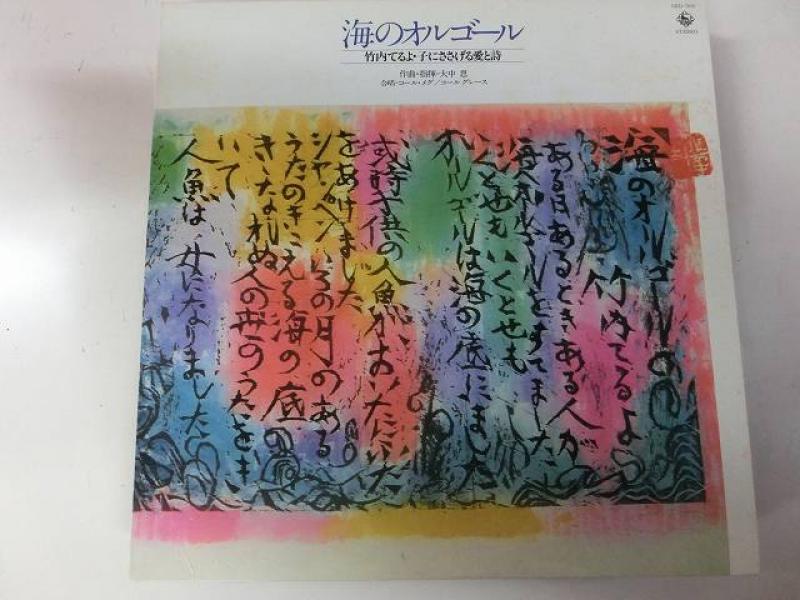 海のオルゴール
竹内てるよ・子にささげる愛と詩
作曲・指揮=大中 恩
合唱=コール・メグ/コール グレース
STEREO
海のオルゴールの
竹内てるよ
ある日あるときある人が
海へオルゴールをすてました
いくと世も いくと世も
オルゴールは海の底にました
或時子供の人魚がおいたにふた
をあけました
シャンペンいろの月のある
うたのきこえる海の底の
きゝなれぬ人の世のうたをき
いて
人魚は女になりました